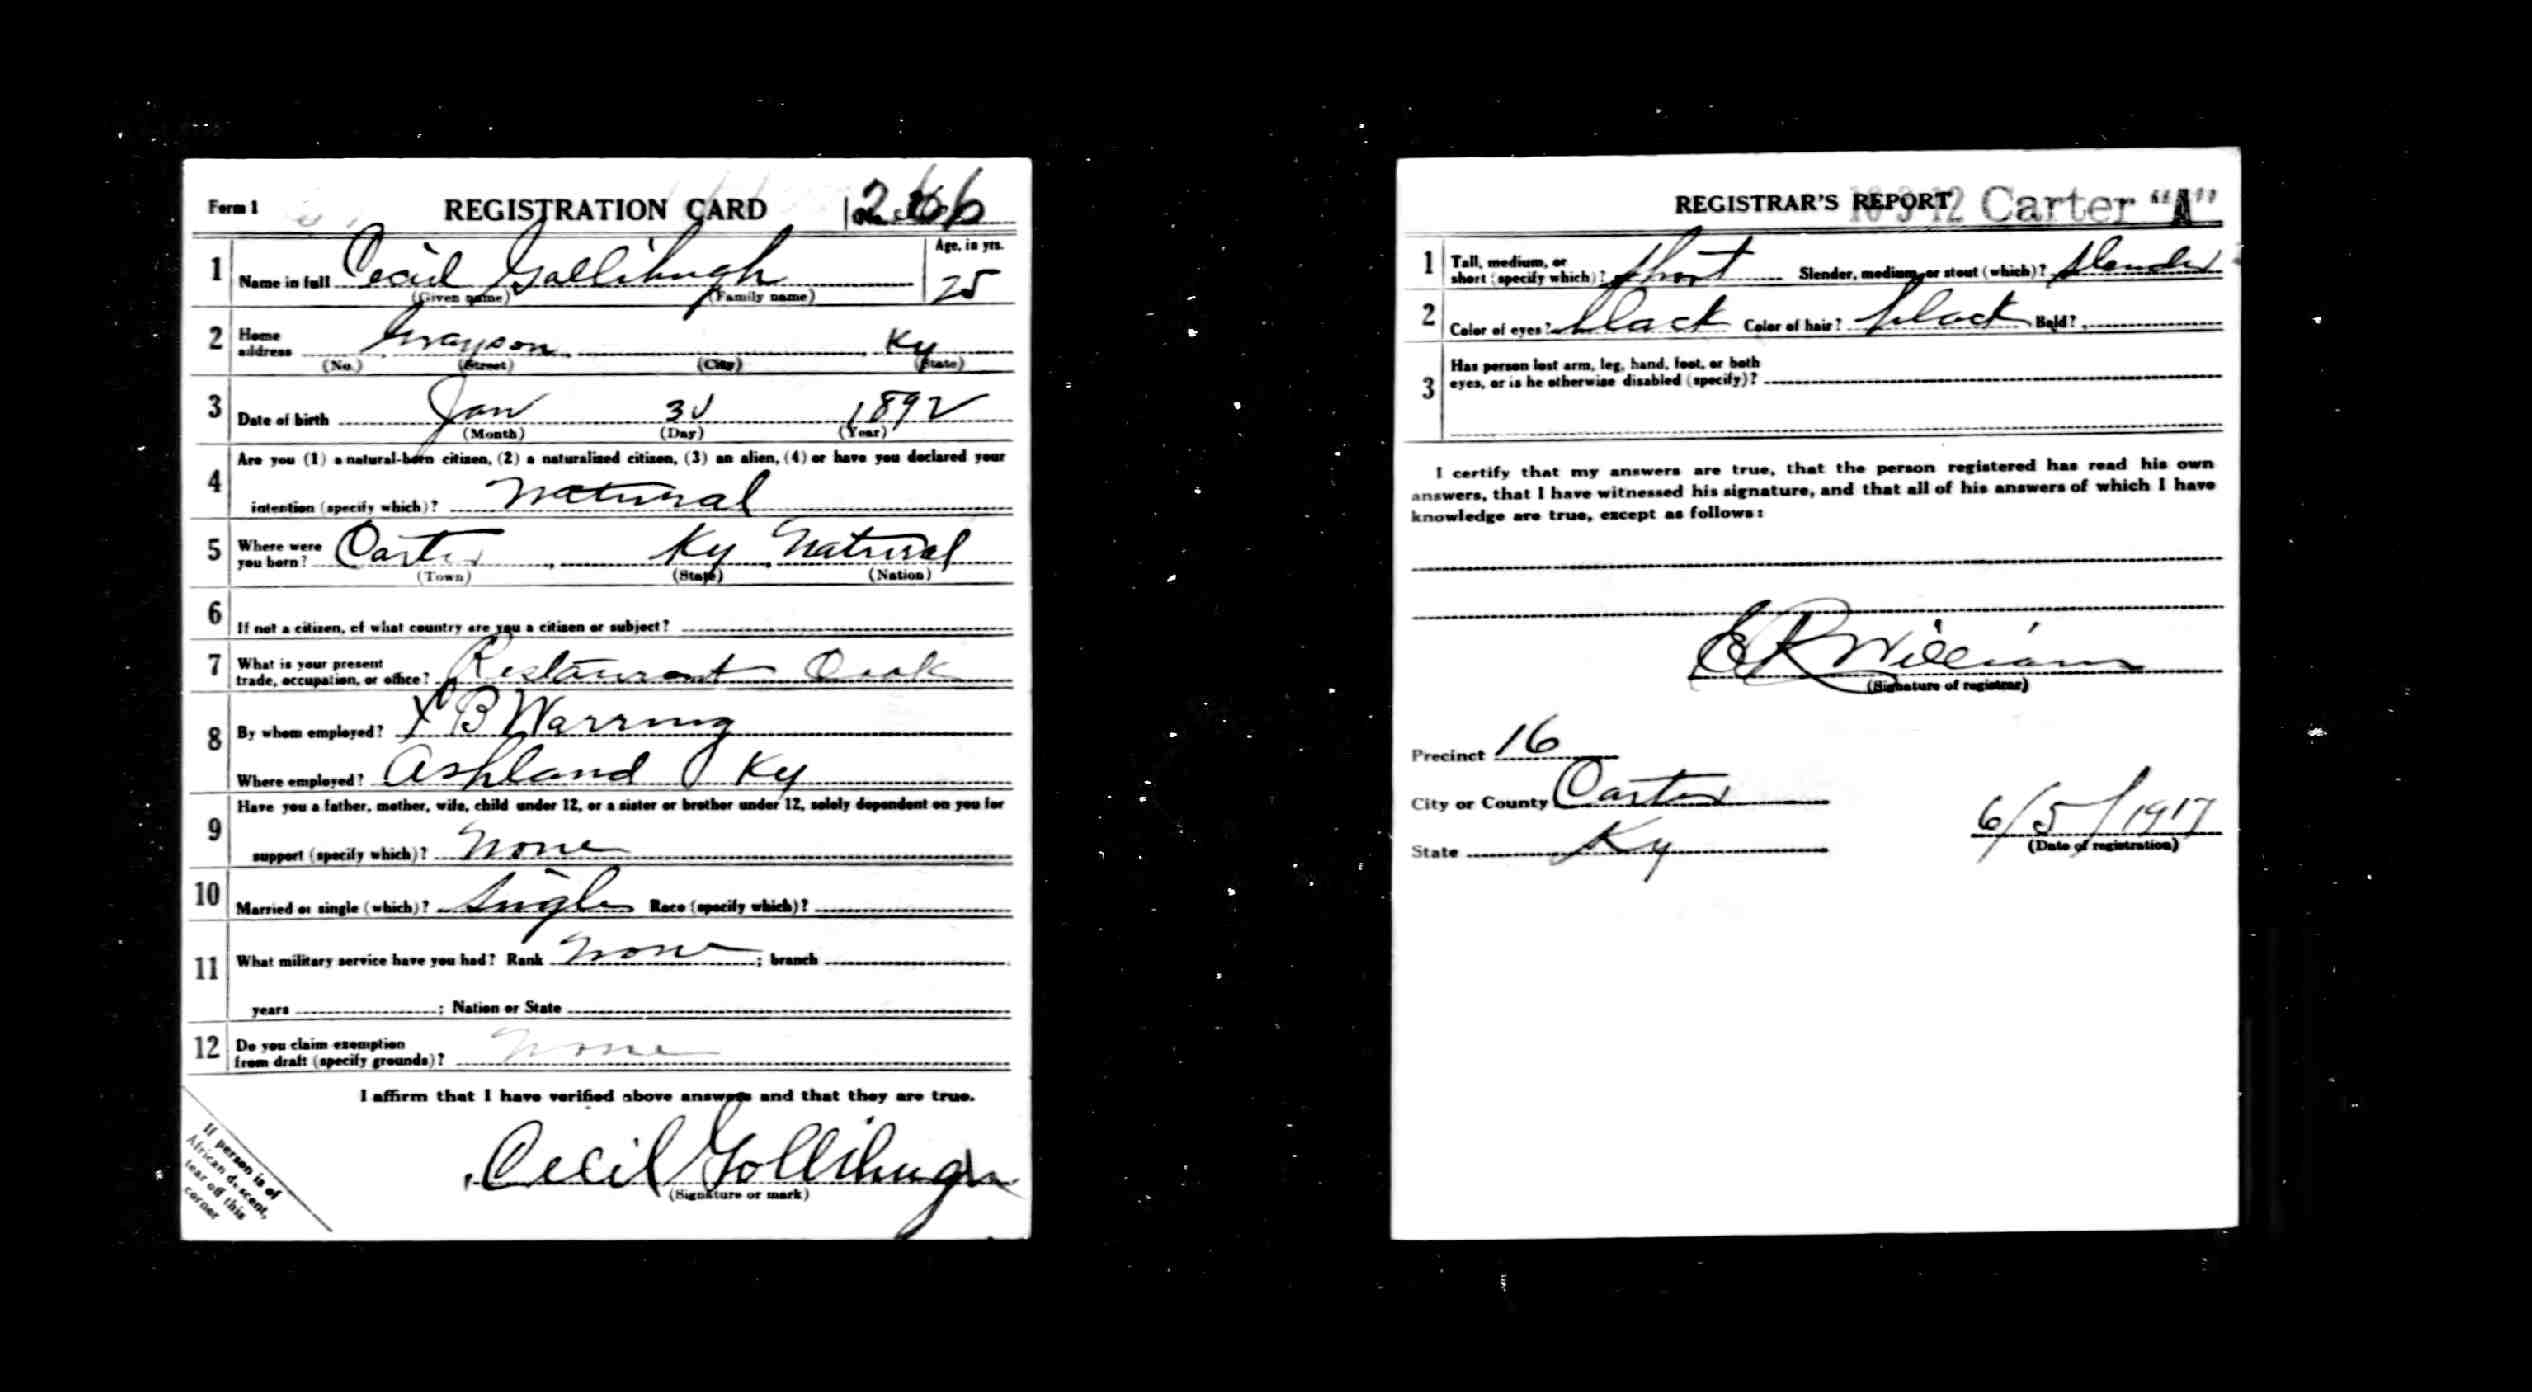 Form 1 REGISTRATION CARD No. 266
1 Name in full Cecil Gollihugh Age, in yrs. 25
(Given name) (Family name)
2 Home address Grayson Ky
(No.) (Street) (City) (State)
3 Date of birth Jan 1892
(Month) (Day) (Year)
4 Are you (1) a natural-born citizen, (2) a naturalized citizen, (3) an alien, (4) or have you declared your
intention (specify which)? natural
5 Where were you born? Carter Ky Natural
(Town) (State) (Nation)
6 If not a citizen, of what country are you a citizen or subject?
7 What is your present
trade, occupation, or office? Restaurant Cook
8 By whom employed? B Warring
Where employed? Ashland Ky
9 Have you a father, mother, wife, child under 12, or a sister or brother under 12, solely dependent on you for
support (specify which)? None
10 Married or single (which)? Single Race (specify which)?
11 What military service have you had? Rank None ; branch
years ; Nation or State
12 Do you claim exemption
from draft (specify grounds)? None
I affirm that I have verified above answers and that they are true.
Cecil Gollihugh
(Signature or mark)
If person is of
African descent,
tear off this
corner
REGISTRAR'S REPORT Carter "A"
1 Tall, medium, or
short (specify which)? Short Slender, medium, or stout (which)? Slender
2 Color of eyes? black Color of hair? black Bald?
3 Has person lost arm, leg, hand, foot, or both
eyes, or is he otherwise disabled (specify)?
I certify that my answers are true, that the person registered has read his own
answers, that I have witnessed his signature, and that all of his answers of which I have
knowledge are true, except as follows:
E R William
(Signature of registrar)
Precinct 16
City or County Carter
State Ky
6/5/1917
(Date of registration)